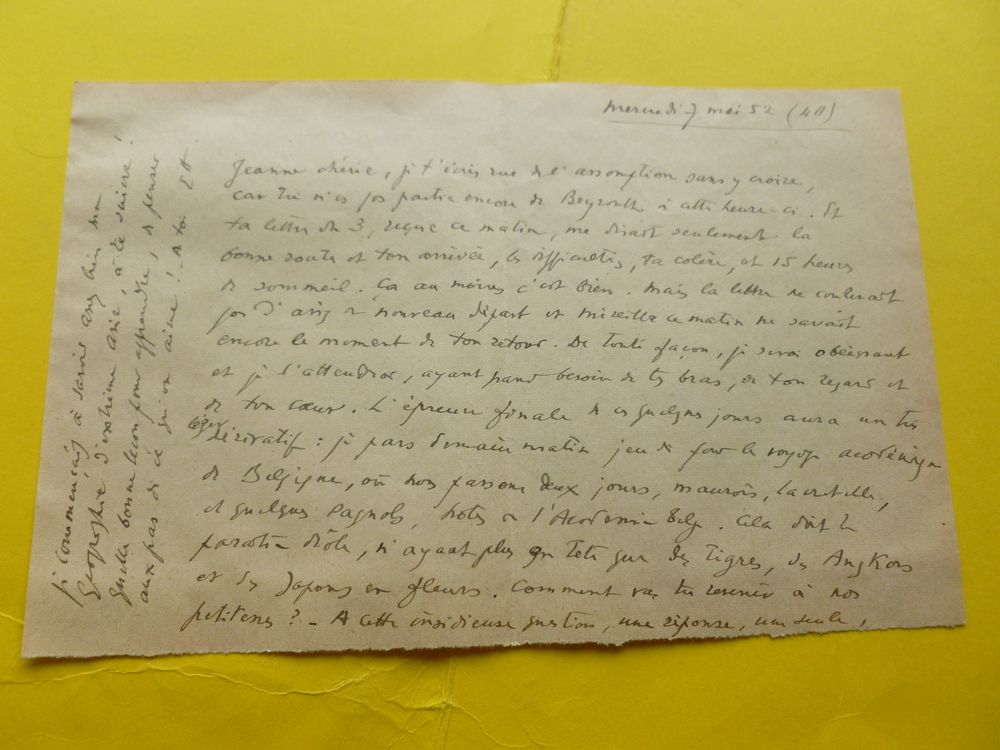 Mercredi 7 mai 52 (4H)
Jeanne chérie, je t'écris rue de l'assomption sans y croire,
car tu n'es pas partie encore de Beyrouth à cette heure-ci. Et
ta lettre du 3, reçue ce matin, me disait seulement la
bonne route et ton arrivée, les difficultés, ta colère, et 15 heures
de sommeil. Ca au moins c'est bien. Mais la lettre ne contenait
pas d'avis de nouveau départ et Mireille ce matin ne savait
encore le moment de ton retour. De toute façon, je serai obéissant
et je t'attendrai, ayant grand besoin de tes bras, de ton regard et
de ton cœur. L'épreuve finale de ces quelques jours aura un très
léger dérivatif : je pars demain matin jeudi pour le voyage académique
de Belgique, où nous passons deux jours, Maurois, Lacretelle,
et quelques Pagnols, hôtes de l'Académie Belge. Cela doit te
paraître drôle, n'ayant plus en tête que des tigres, des Angkors
et des Japons en fleurs. Comment vas-tu revenir à nos
petitesses ? - A cette insidieuse question, une réponse, une seule,
Je commençais à savoir assez bien ma
géographie d'extrême asie, à te suivre !
Quelle bonne leçon pour apprendre, de penser
aux pas de ce qu'on aime ! - A toi EH.